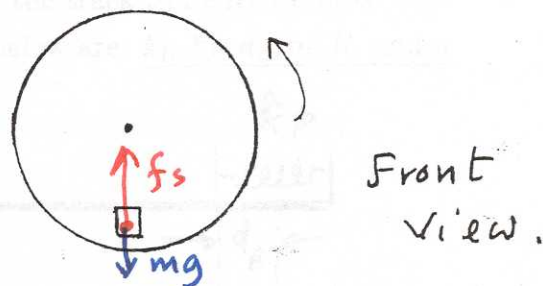 fs
mg
Front
View.